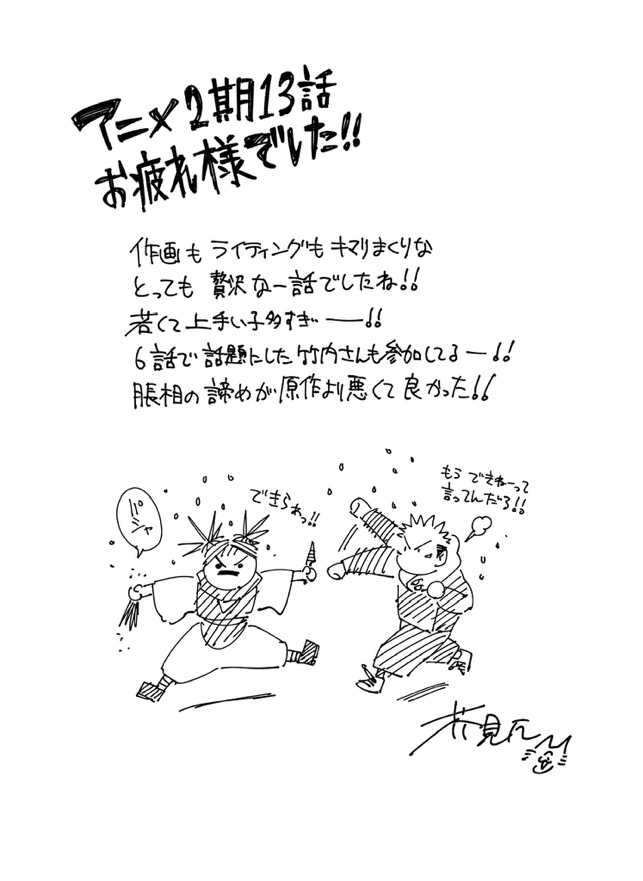 アニメ2期13話
お疲れ様でした!!
作画もライティングもキマりまくりな
とっても贅沢な一話でしたね!!
若くて上手い子多すぎ──!!
6話で話題にした竹内さんも参加してるー!!
脹相の諦めが原作より悪くて良かった!!
パシャ
できらぁっ!!
もうできねーって
言ってんだろ!!
芥見下々